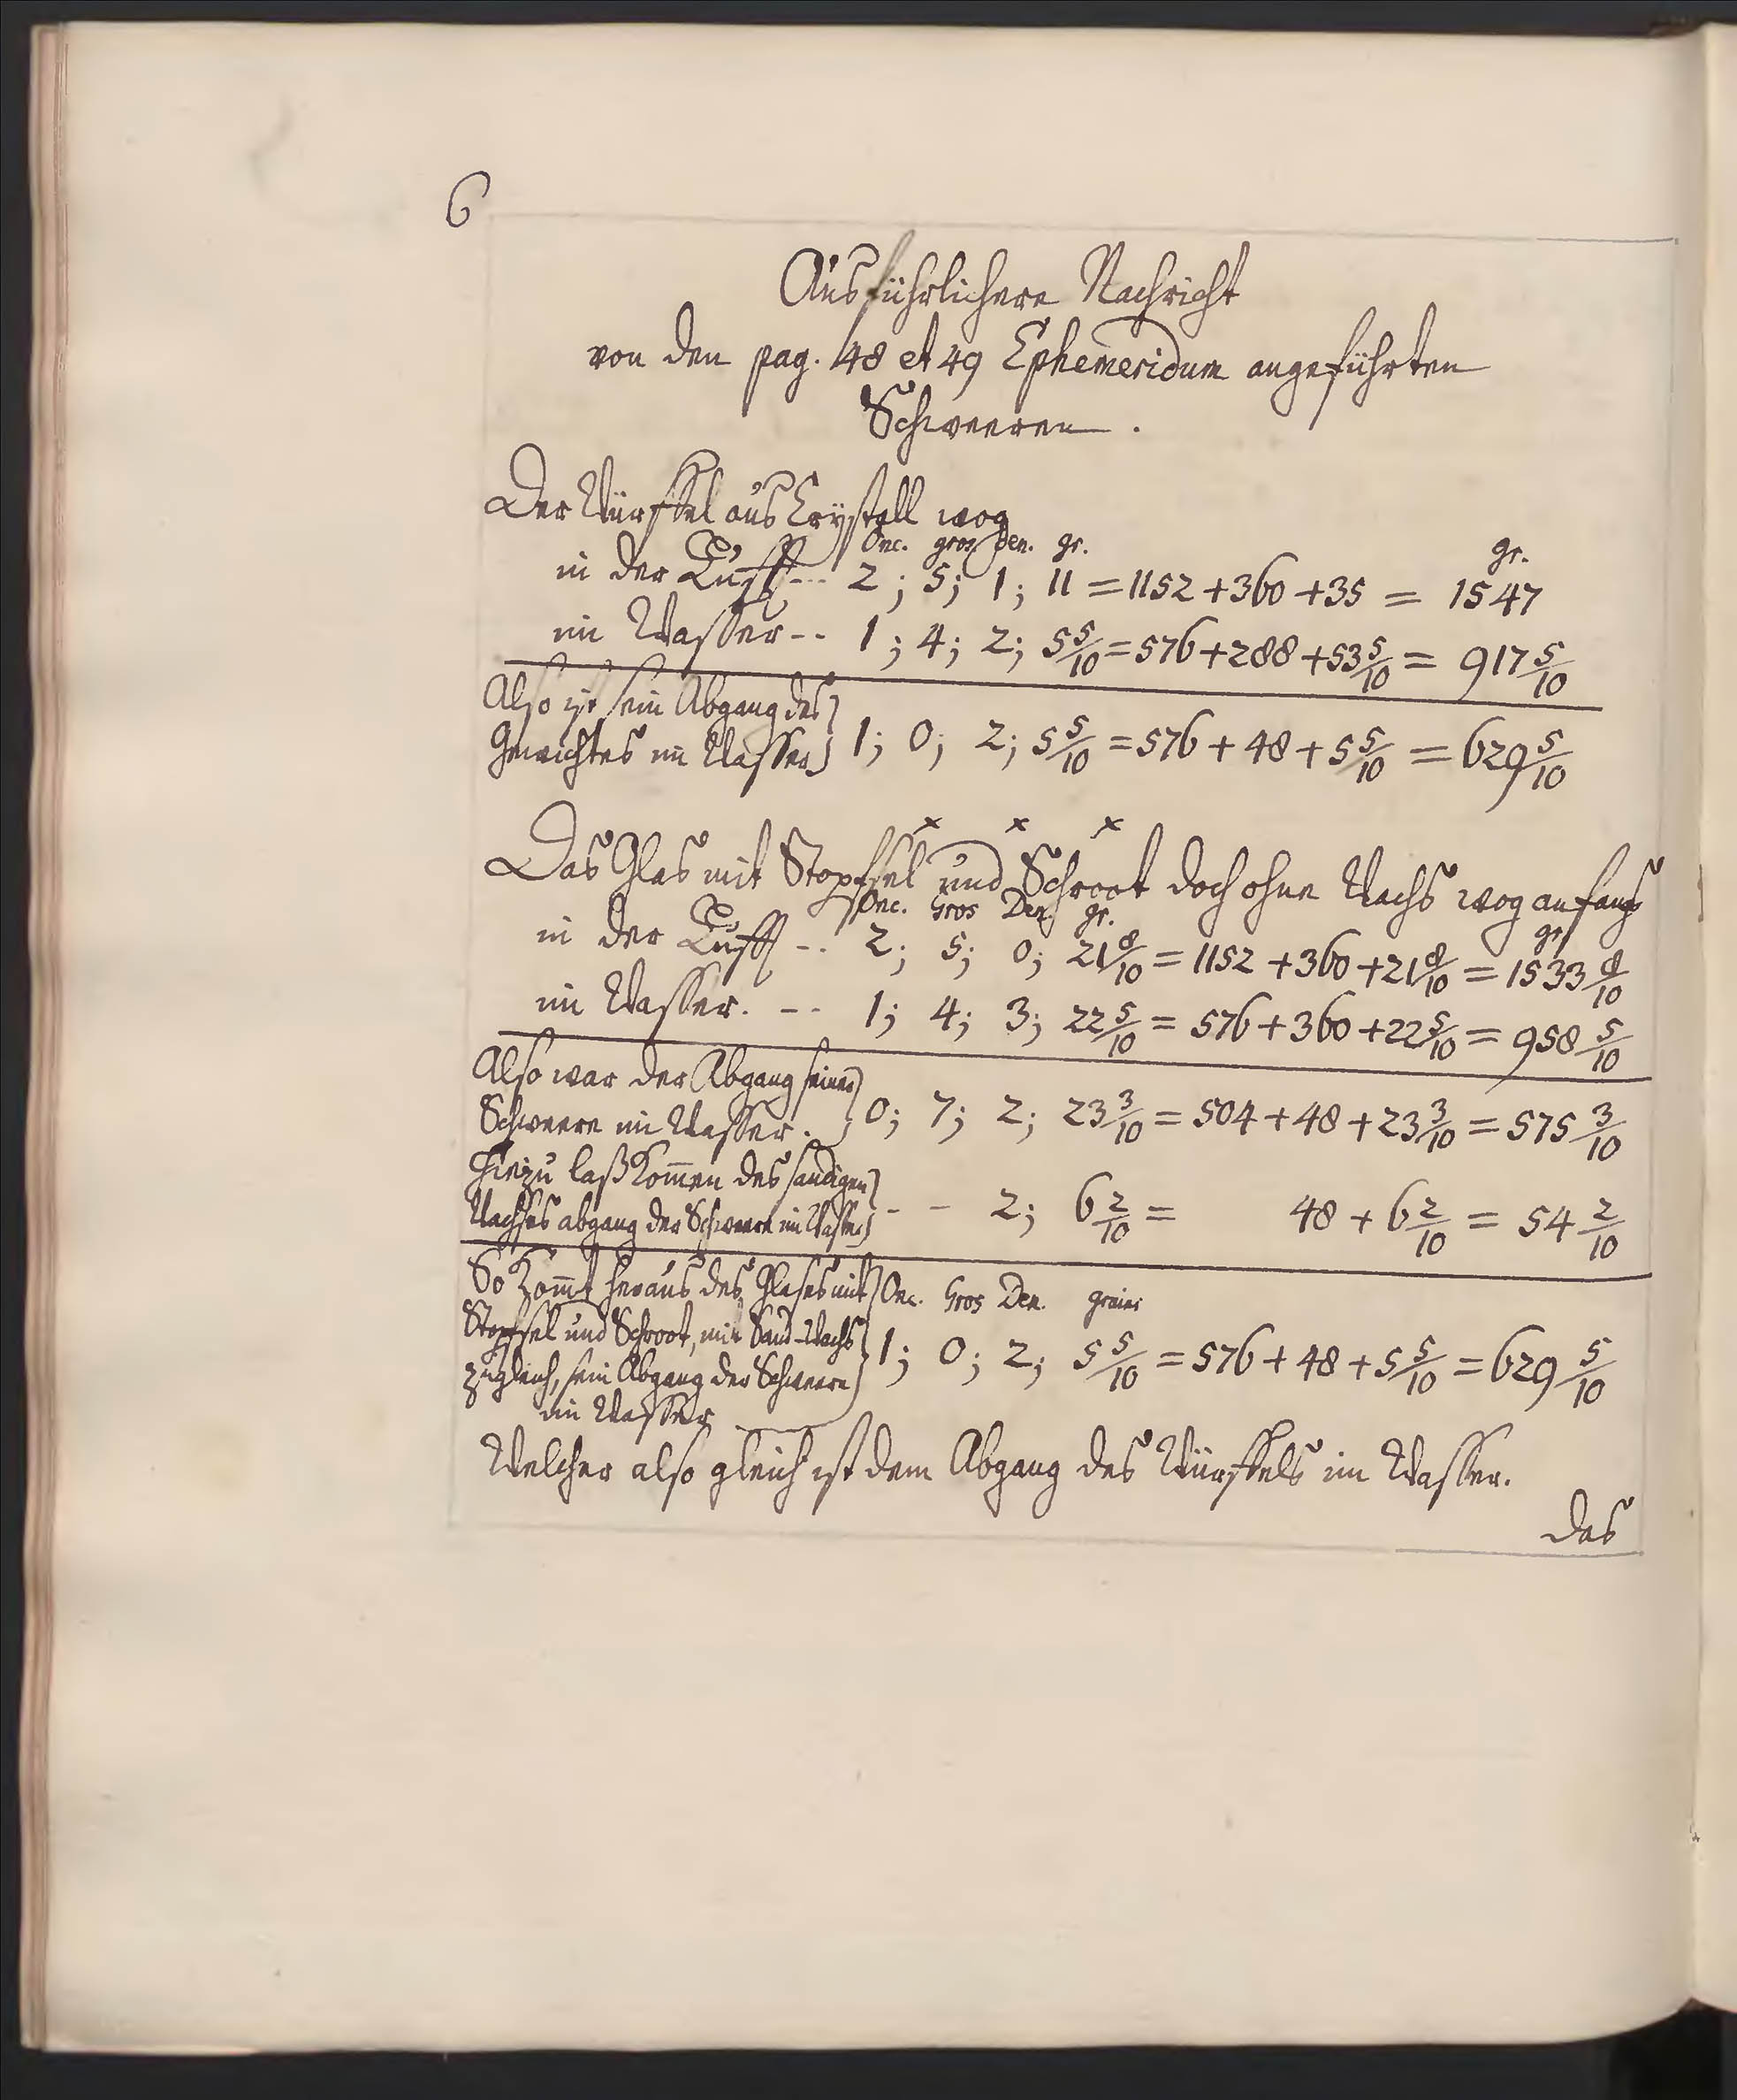 6
Ausführlichere Nachricht
von den pag. 48 et 49 Ephemeridum angeführten
Schweeren.
Der Würffel aus Crystall wog
Onc. gros Den. gr. gr.
in der Lufft --- 2; 5; 1; 11 = 1152 + 360 + 35 = 1547
im Wasser -- 1; 4; 2; 5 5/10 = 576 + 288 + 53 5/10 = 917 5/10
Also ist sein Abgang des
Gewichtes im Wasser } 1; 0; 2; 5 5/10 = 576 + 48 + 5 5/10 = 629 5/10
x x x
Das Glas mit Stopfsel und Schroot doch ohne Wachs wog anfangs
Onc. Gros Den. gr. gr.
in der Lufft -- 2; 5; 0; 21 8/10 = 1152 + 360 + 21 8/10 = 1533 8/10
im Wasser. -- 1; 4; 3; 22 5/10 = 576 + 360 + 22 5/10 = 958 5/10
Also war der Abgang seiner
Schweere im Wasser. } 0; 7; 2; 23 3/10 = 504 + 48 + 23 3/10 = 575 3/10
Hiezu laß kom̄en des sandigen
Wachses abgang der Schweere im Wasser } - - 2; 6 2/10 = 48 + 6 2/10 = 54 2/10
So kom̄t heraus des Glases mit } Onc. Gros Den. grains
Stopfsel und Schroot, mit Sand-Wachs
zugleich, sein Abgang der Schweere } 1; 0; 2; 5 5/10 = 576 + 48 + 5 5/10 = 629 5/10
im Wasser
Welcher also gleich ist dem Abgang des Würffels im Wasser.
Das